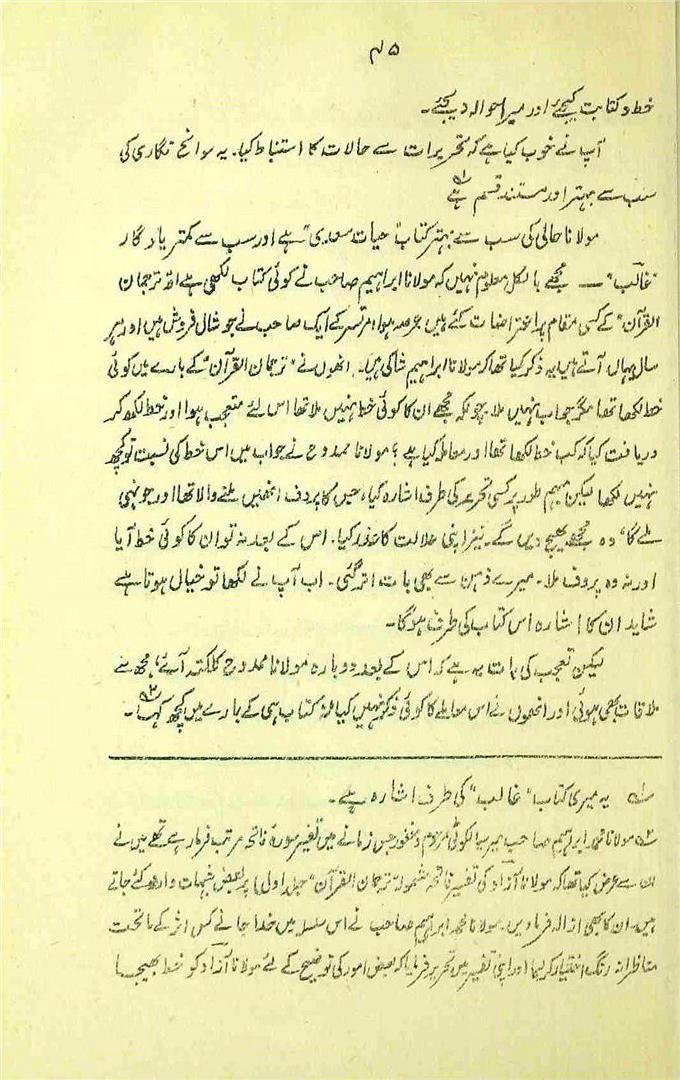 ۴۵
خط و کتابت کیجئے اور میرا حوالہ دیجئے۔
آپ نے خوب کیا ہے کہ تحریرات سے حالات کا استنباط کیا۔ یہ سوانح نگاری کی
سب سے بہتر اور مستند قسم ہے
مولانا حالی کی سب سے بہتر کتاب "حیات سعدی" ہے اور سب سے کمتر یادگار
"غالب" — مجھے بالکل معلوم نہیں کہ مولانا ابراہیم صاحب نے کوئی کتاب لکھی ہے اور ترجمان
القرآن" کے کسی مقام پر اعتراضات کئے ہیں عرصہ ہوا امرتسر کے ایک صاحب نے جو شال فروش ہیں اور ہر
سال یہاں آتے ہیں یہ ذکر کیا تھا کہ مولانا ابراہیم شاکی ہیں۔ انھوں نے "ترجمان القرآن" کے بارے میں کوئی
خط لکھا تھا مگر جواب نہیں ملا چونکہ مجھے ان کا کوئی خط نہیں ملا تھا اس لئے متعجب ہوا اور خط لکھ کر
دریافت کیا کہ کب خط لکھا تھا اور معاملہ کیا ہے ؟ مولانا ممدوح نے جواب میں اس خط کی نسبت تو کچھ
نہیں لکھا لیکن مبہم طور پر کسی تحریر کی طرف اشارہ کیا، جس کا پروف انھیں ملنے والا تھا اور جونہی
ملے گا، وہ مجھے بھیج دیں گے۔ نیز اپنی علالت کا عذر کیا۔ اس کے بعد نہ تو ان کا کوئی خط آیا
اور نہ وہ پروف ملا۔ میرے ذہن سے بھی بات اتر گئی۔ اب آپ نے لکھا تو خیال ہوتا ہے
شاید ان کا اشارہ اس کتاب کی طرف ہو گا۔
لیکن تعجب کی بات یہ ہے کہ اس کے بعد دوبارہ مولانا ممدوح کلکتہ آئے، مجھ سے
ملاقات بھی ہوئی اور انھوں نے اس معاملے کا کوئی ذکر نہیں کیا نہ کتاب ہی کے بارے میں کچھ کہا۔
۱؎ یہ میری کتاب "غالب" کی طرف اشارہ ہے۔
۲؎ مولانا محمد ابراہیم صاحب میر سیالکوٹی مرحوم و مغفور جس زمانے میں تفسیر سورۂ فاتحہ مرتب فرما رہے تھے میں نے
ان سے عرض کیا تھا کہ مولانا آزاد کی تفسیر فاتحہ مشمولہ ترجمان القرآن" (جلد اول) پر بعض شبہات وارد کئے جاتے
ہیں۔ ان کا بھی ازالہ فرما دیں۔ مولانا محمد ابراہیم صاحب نے اس سلسلہ میں خدا جانے کس اثر کے ماتحت
مناظرانہ رنگ اختیار کر لیا اور اپنی تفسیر میں تحریر فرمایا کہ بعض امور کی توضیح کے لئے مولانا آزاد کو خط بھیجا